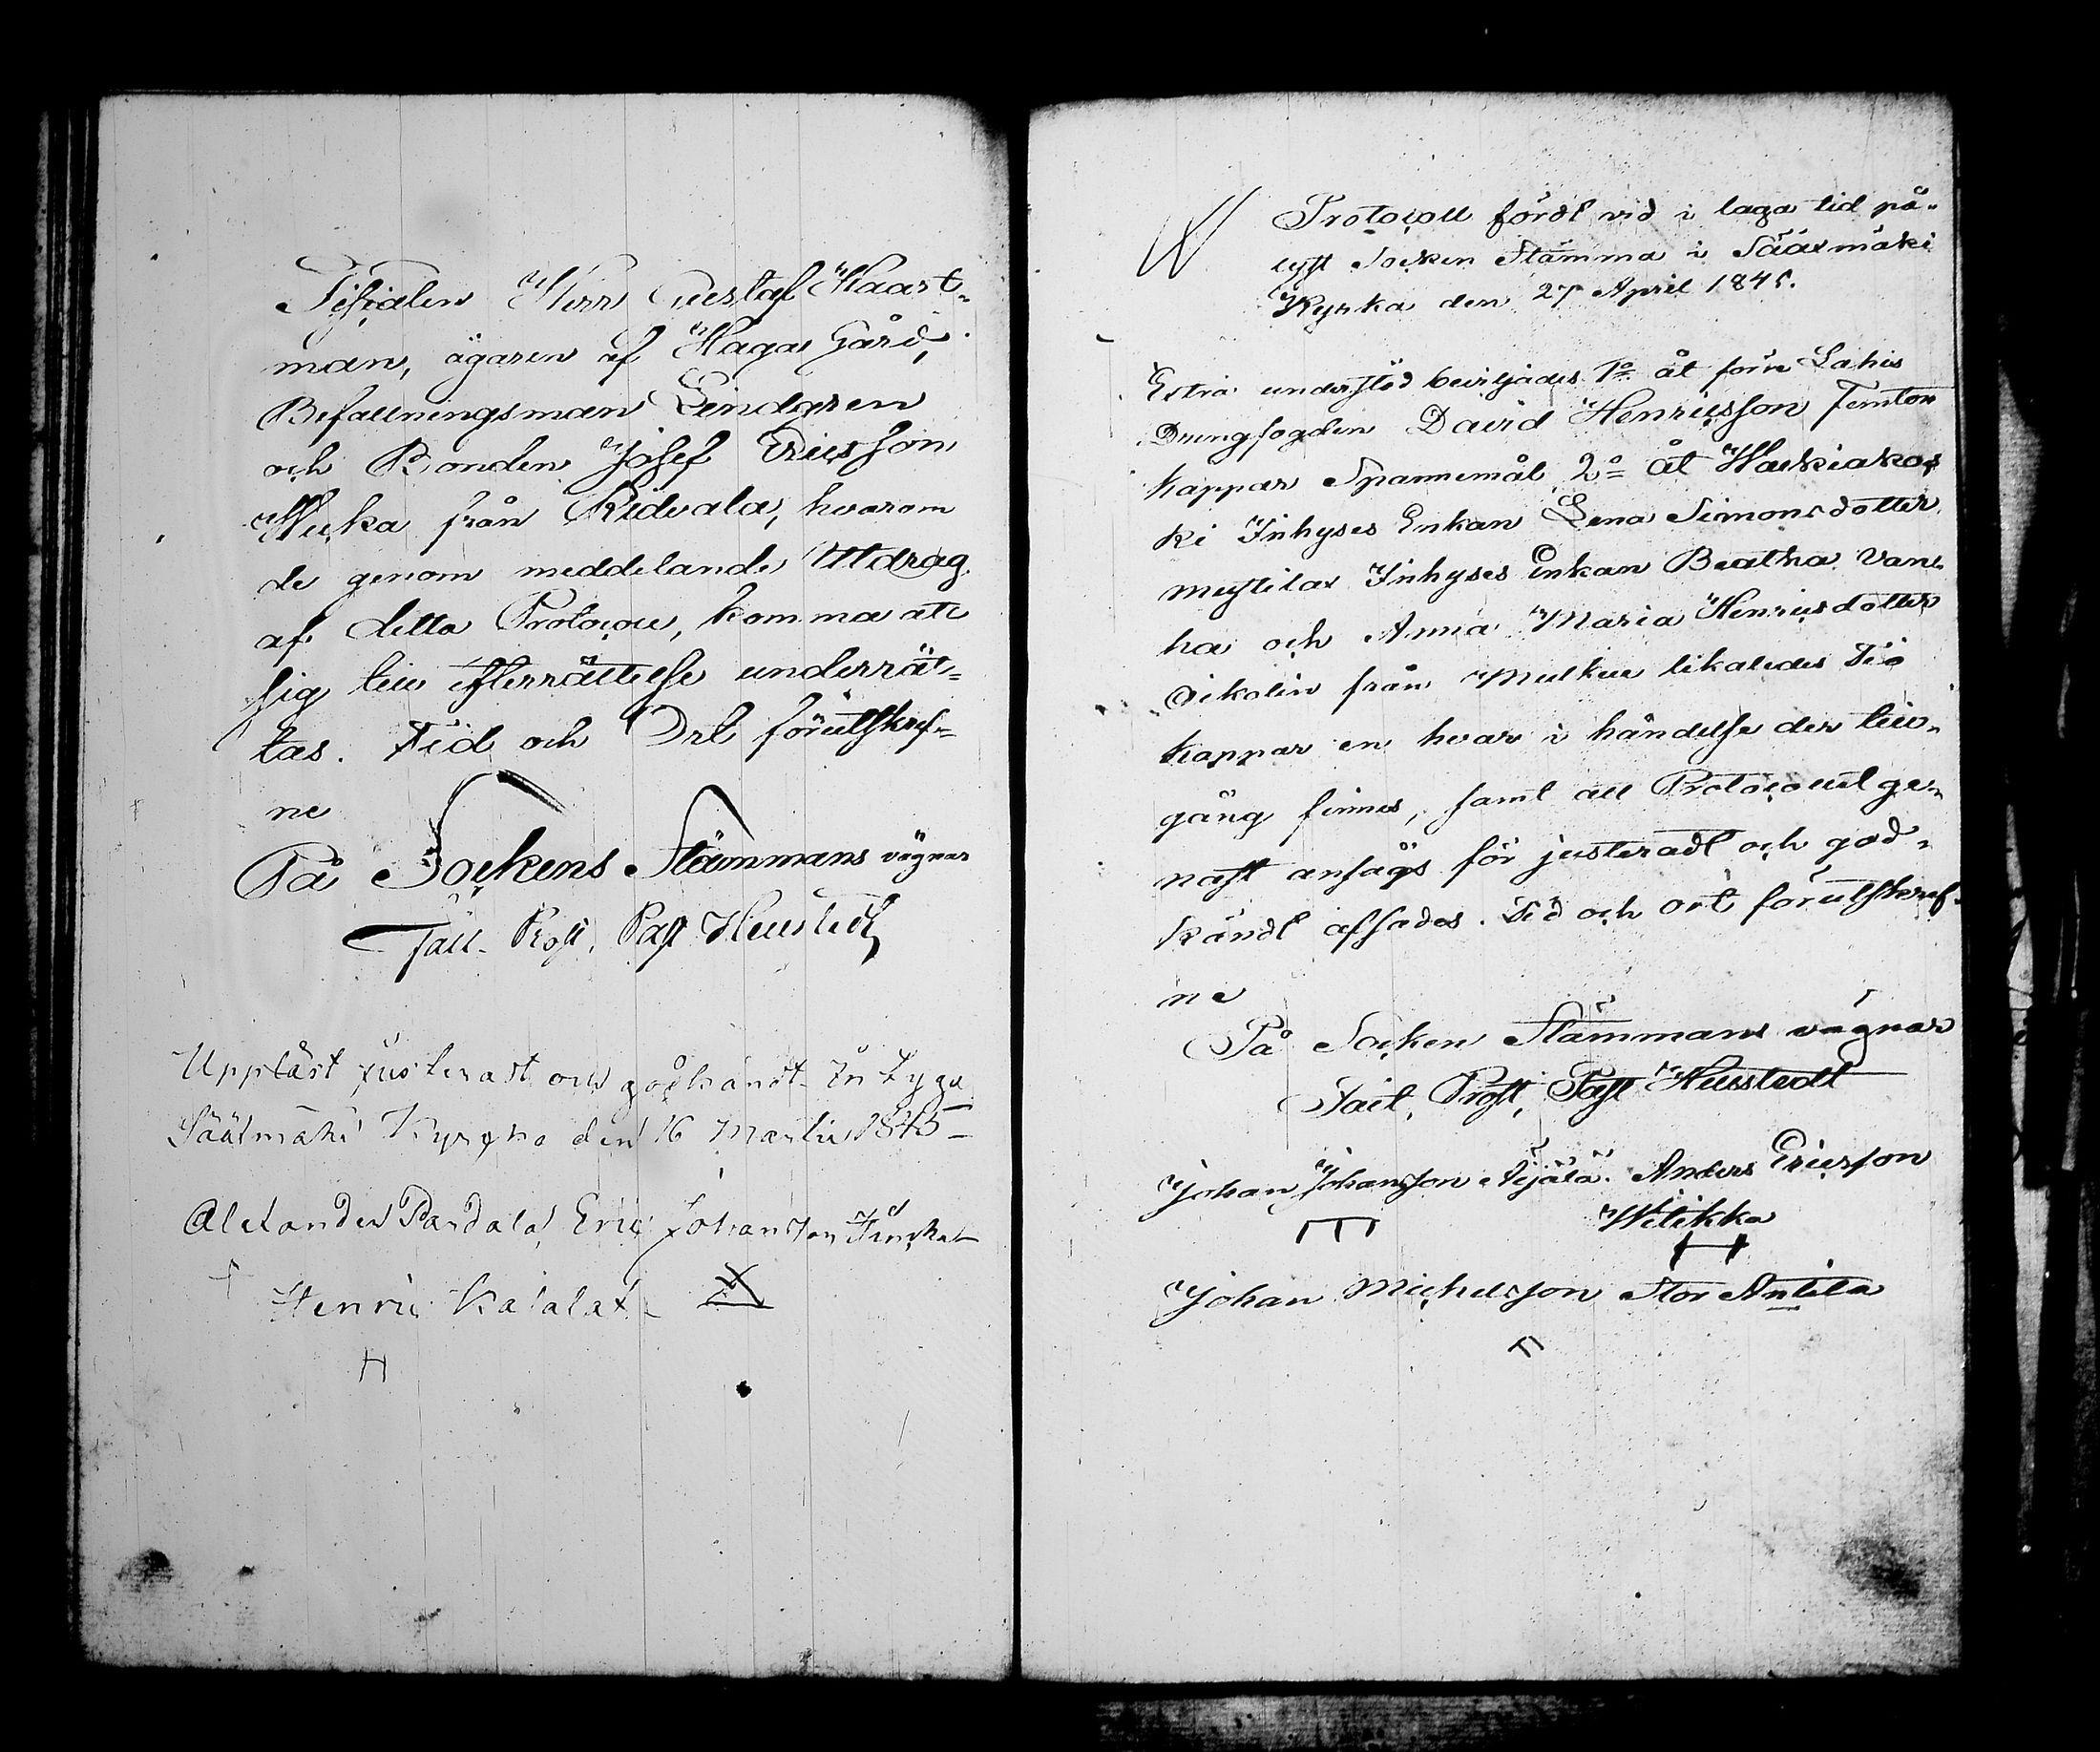 Fiscalen Herr Gustaf Haart-
man, ägaren af Haga Gård,
Befallningsman Lindgren
och Bonden Josef Ericsson
Wuka från Ridvala, hvarom
de genom meddelande Utdrag
af detta Protocoll, komma att
sig till efterrättelse underrät-
tas. Tid och Ort förutskref-
ne
På Sockens Stämmans vägnar
Past Heurstedt
Uppläst justerast och godkändt In
Sääxmäki Kyrcka den 16 Martii 1845
Alexander Pardala, Eric Johansson
Henric Kaialax
H
Protocoll fördt vid i laga tid på-
lyst Socken Stämma i Sääxmäki
Kyrka den 27 April 1845.
Extra understöd beviljades 1o åt förre Lahis
Drengfogden David Henricsson Femton
kappar Spannemål 2o åt Wackiakos
ki Inhyses Enkan Lena Simonsdotter
mustilax Inhyses Enkan Beatha Van
ha och Anna Maria Henricsdotter
Oikolin från likaledes Tio
kappar en hvar i händelse der till-
gång finnes, samt att Protocollet ge-
nast ansågs för justeradt och god-
kändt afsades. Tid och ort förutskref-
ne
På Socken Stämmans vägnar
Past Heurstedt
Johan Johansson Äijälä. Anders Ericsson
Wilikka
Johan Michelsson Stor Antila